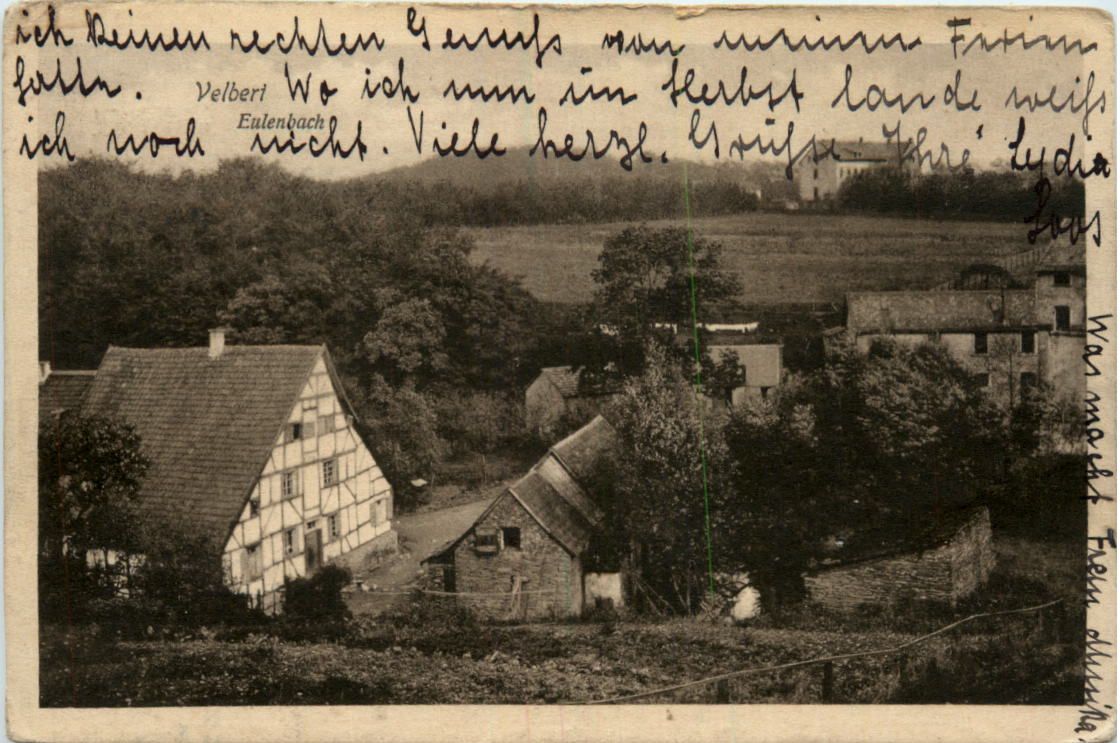 ich keinen rechten Genuss von meinen Ferien
hatte. Wo ich nun im Herbst lande weiß
ich noch nicht. Viele herzl. Grüße Ihre Lydia
Loos
Velbert
Eulenbach
Was macht Frein